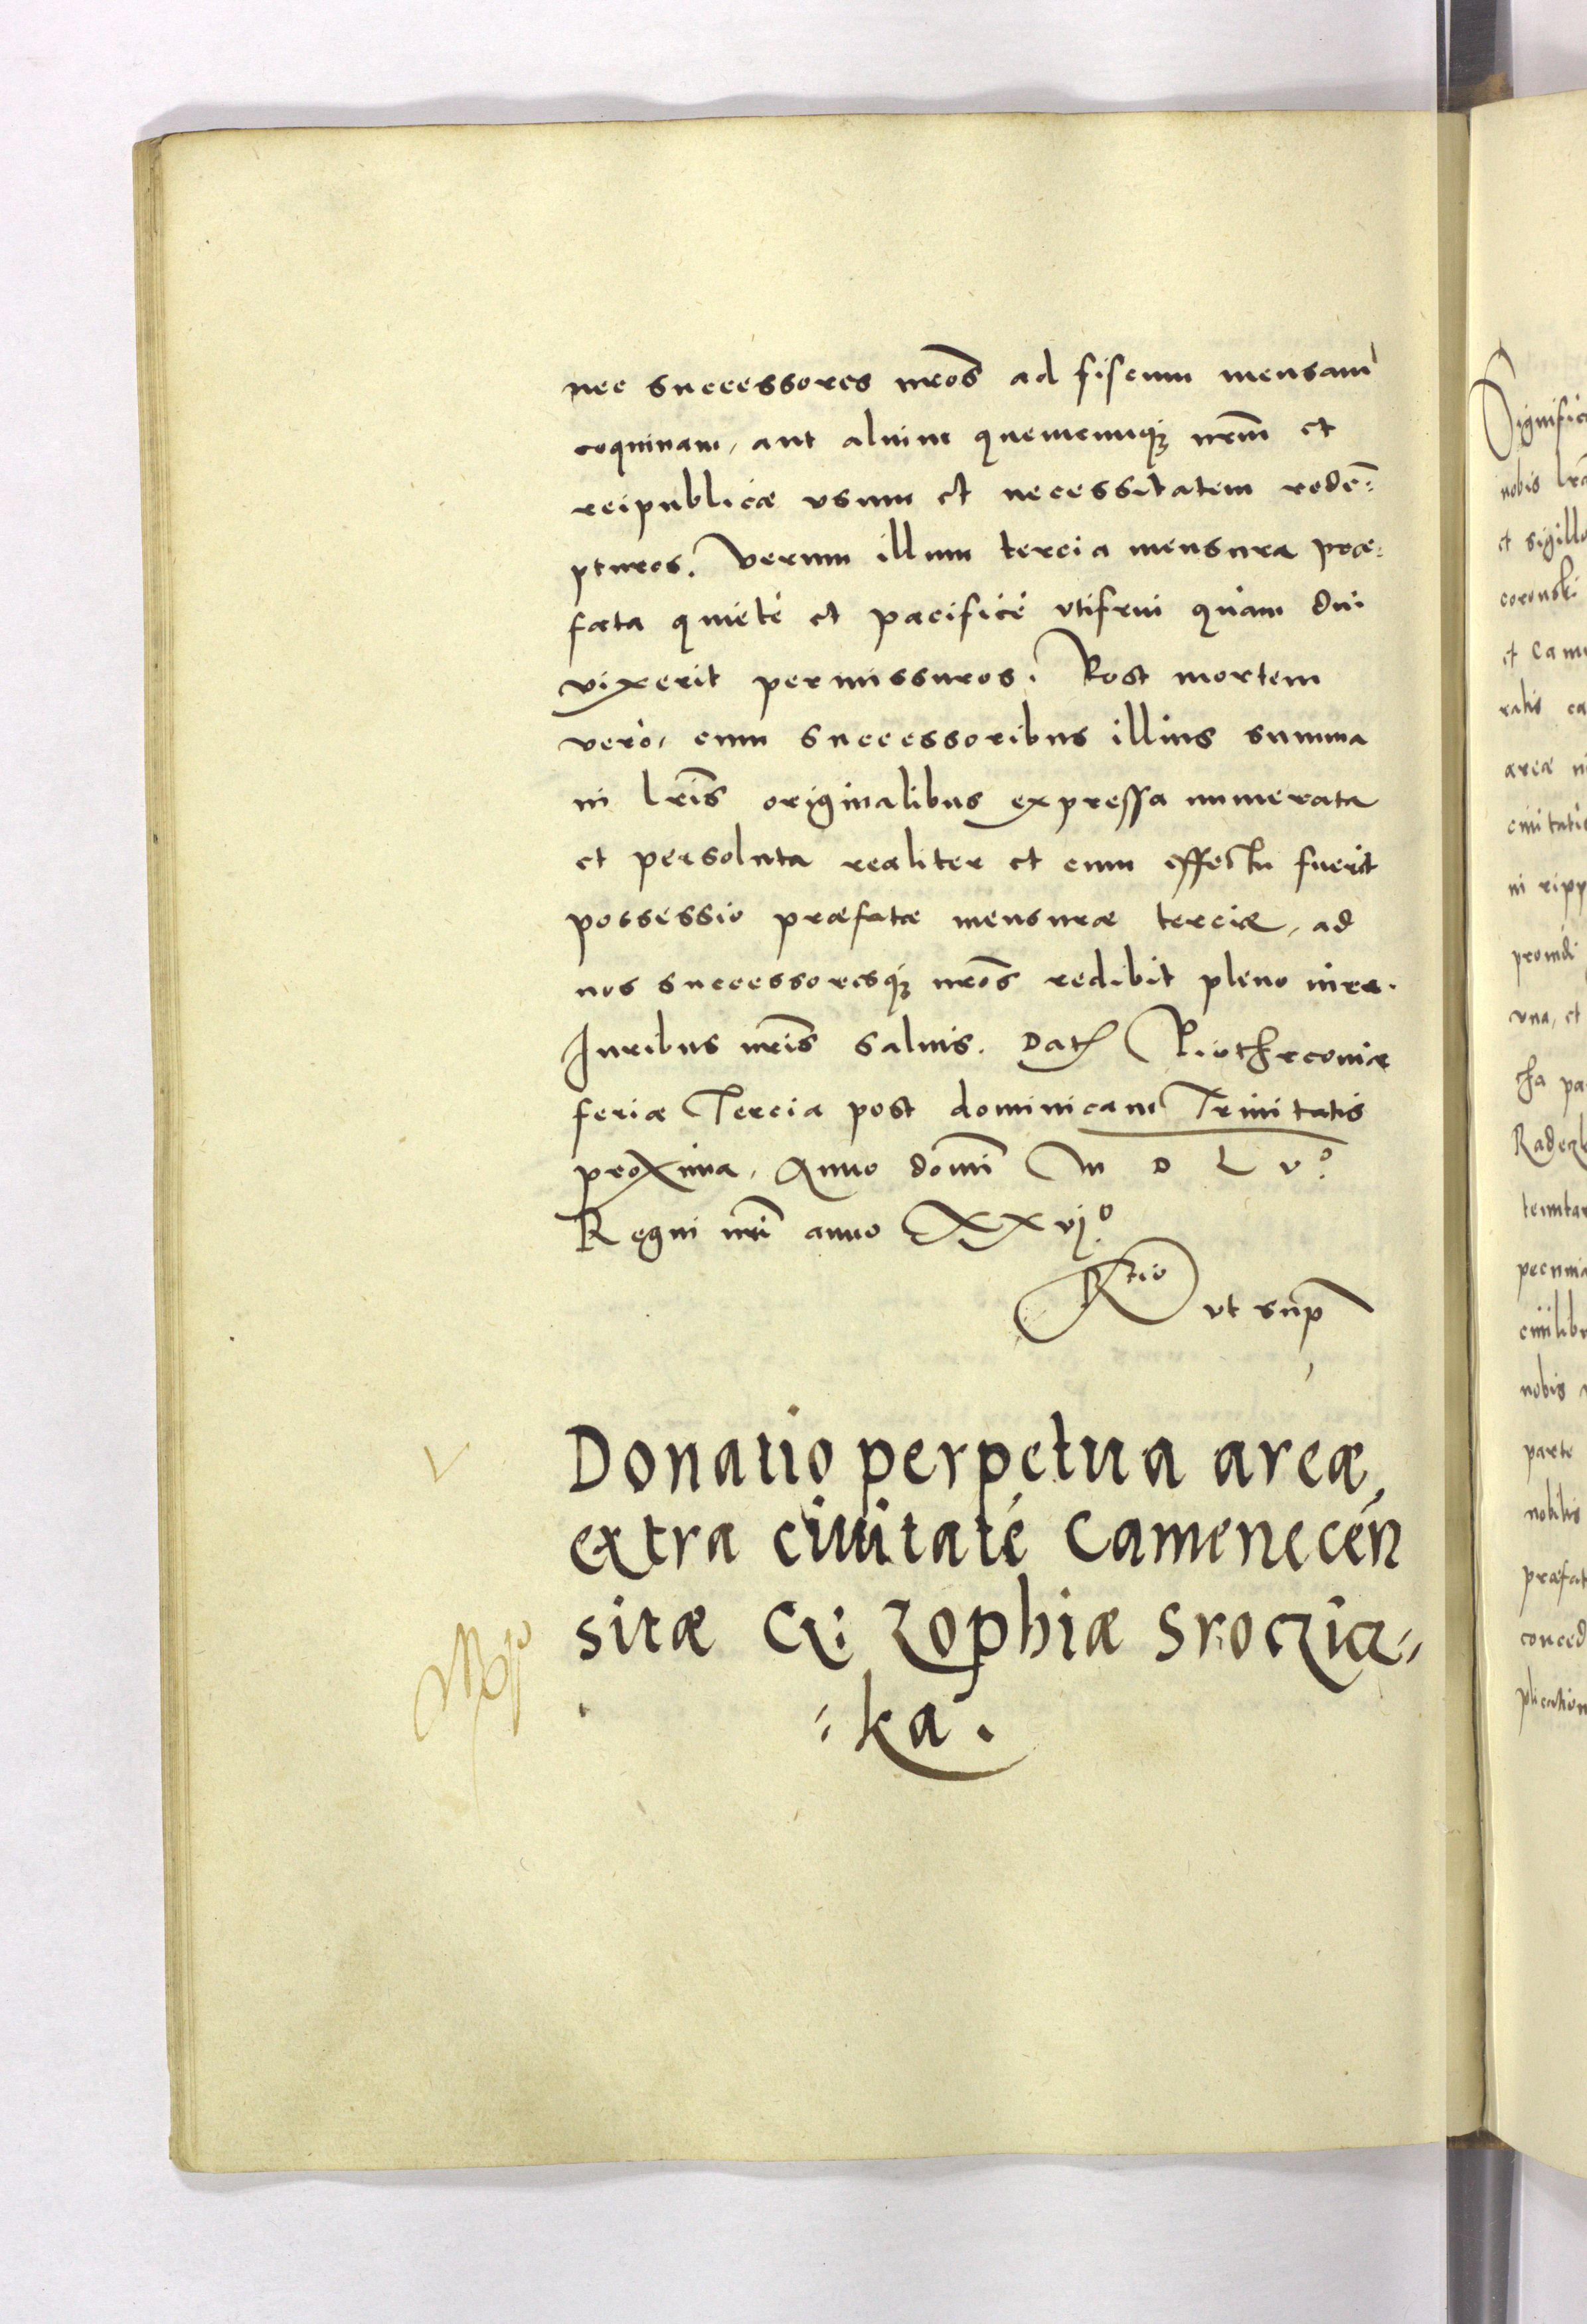 nec successores nr̃os ad fiscum mensam
coquinam, aut alium quemcumqꝫ nr̃um et
reipublicæ vsum et necessitatem redẽ=
pturos. Verum illum tercia mensura præ=
fata quiete et pacifice vtifrui quam diu
vixerit permissuros. Post mortem
vero, cum successoribus illius summa
in lr̃is originalibus expressa numerata
et persoluta realiter et cum effectu fuerit
possessio præfatæ mensuræ terciæ, ad
nos successoresqꝫ nr̃os redibit pleno iure.
Iuribus nr̃is saluis. Dat Piothrcouiæ
feria Tercia post dominicam Trinitatis
proxima, Anno domi M D L vº.
Regni nr̃i anno XXvjº.
Rtio vt sup
Donatio perpetua areæ,
extra ciuitatē Camenecēn
sitæ G: Zophiæ Sroczic=
=ka.
Significa
nobis lrã
et sigillo
coronski
et Cam
ralis ca
areæ
ciuitatis
in ripp
proindi
vna, et
cha pa
Raderk
tenuta
pecunia
ciuilibu
nobis
parte
nobilis
præfat
conced
plication